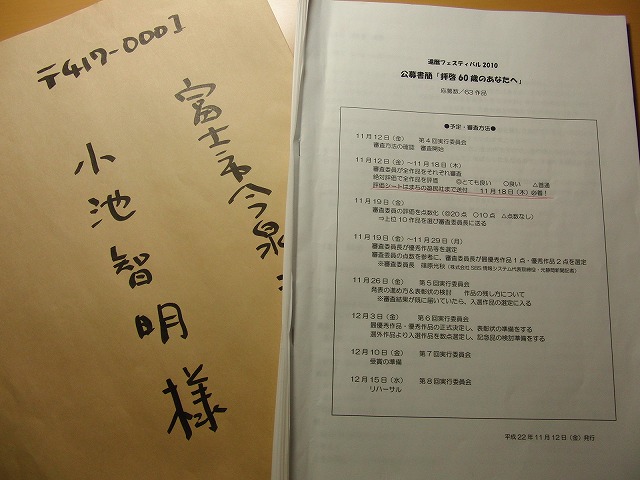 〒417-0001
富士市今泉
小池智明様
還暦フェスティバル2010
公募書簡「拝啓60歳のあなたへ」
応募数／63作品
●予定・審査方法●
11月12日（金） 第4回実行委員会
審査方法の確認 審査開始
11月12日（金）～11月18日（木）
審査委員が全作品をそれぞれ審査
絶対評価で全作品を評価 ◎とても良い ○良い △普通
評価シートはまちの遊民社まで送付 11月18日（木）必着！
11月19日（金）
審査委員の評価を点数化（◎20点 ○10点 △点数なし）
⇒上位10作品を選び審査委員長に送る
11月19日（金）～11月29日（月）
審査委員長が優秀作品等を選定
審査委員の点数を参考に、審査委員長が最優秀作品1点・優秀作品2点を選定
※審査委員長 篠原光秋（株式会社SBS情報システム代表取締役・元静岡新聞記者）
11月26日（金） 第5回実行委員会
発表の進め方＆表彰状の検討 作品の残し方について
※審査結果が既に届いていたら、入選作品の選定に入る
12月3日（金） 第6回実行委員会
最優秀作品・優秀作品の正式決定し、表彰状の準備をする
選外作品より入選作品を数点選定し、記念品の検討準備をする
12月10日（金） 第7回実行委員会
受賞の準備
12月15日（水） 第8回実行委員会
リハーサル
平成22年11月12日（金）発行